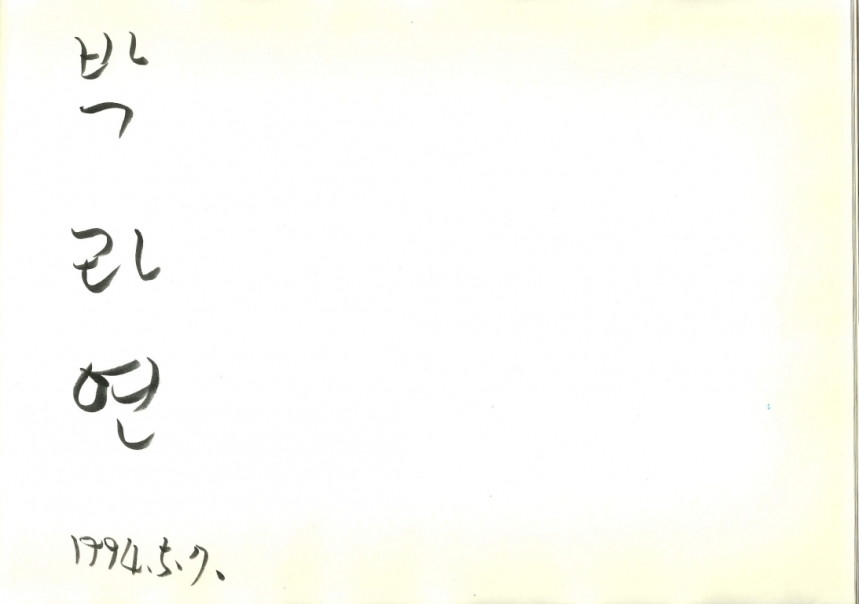 박
라
연
1994.5.7.